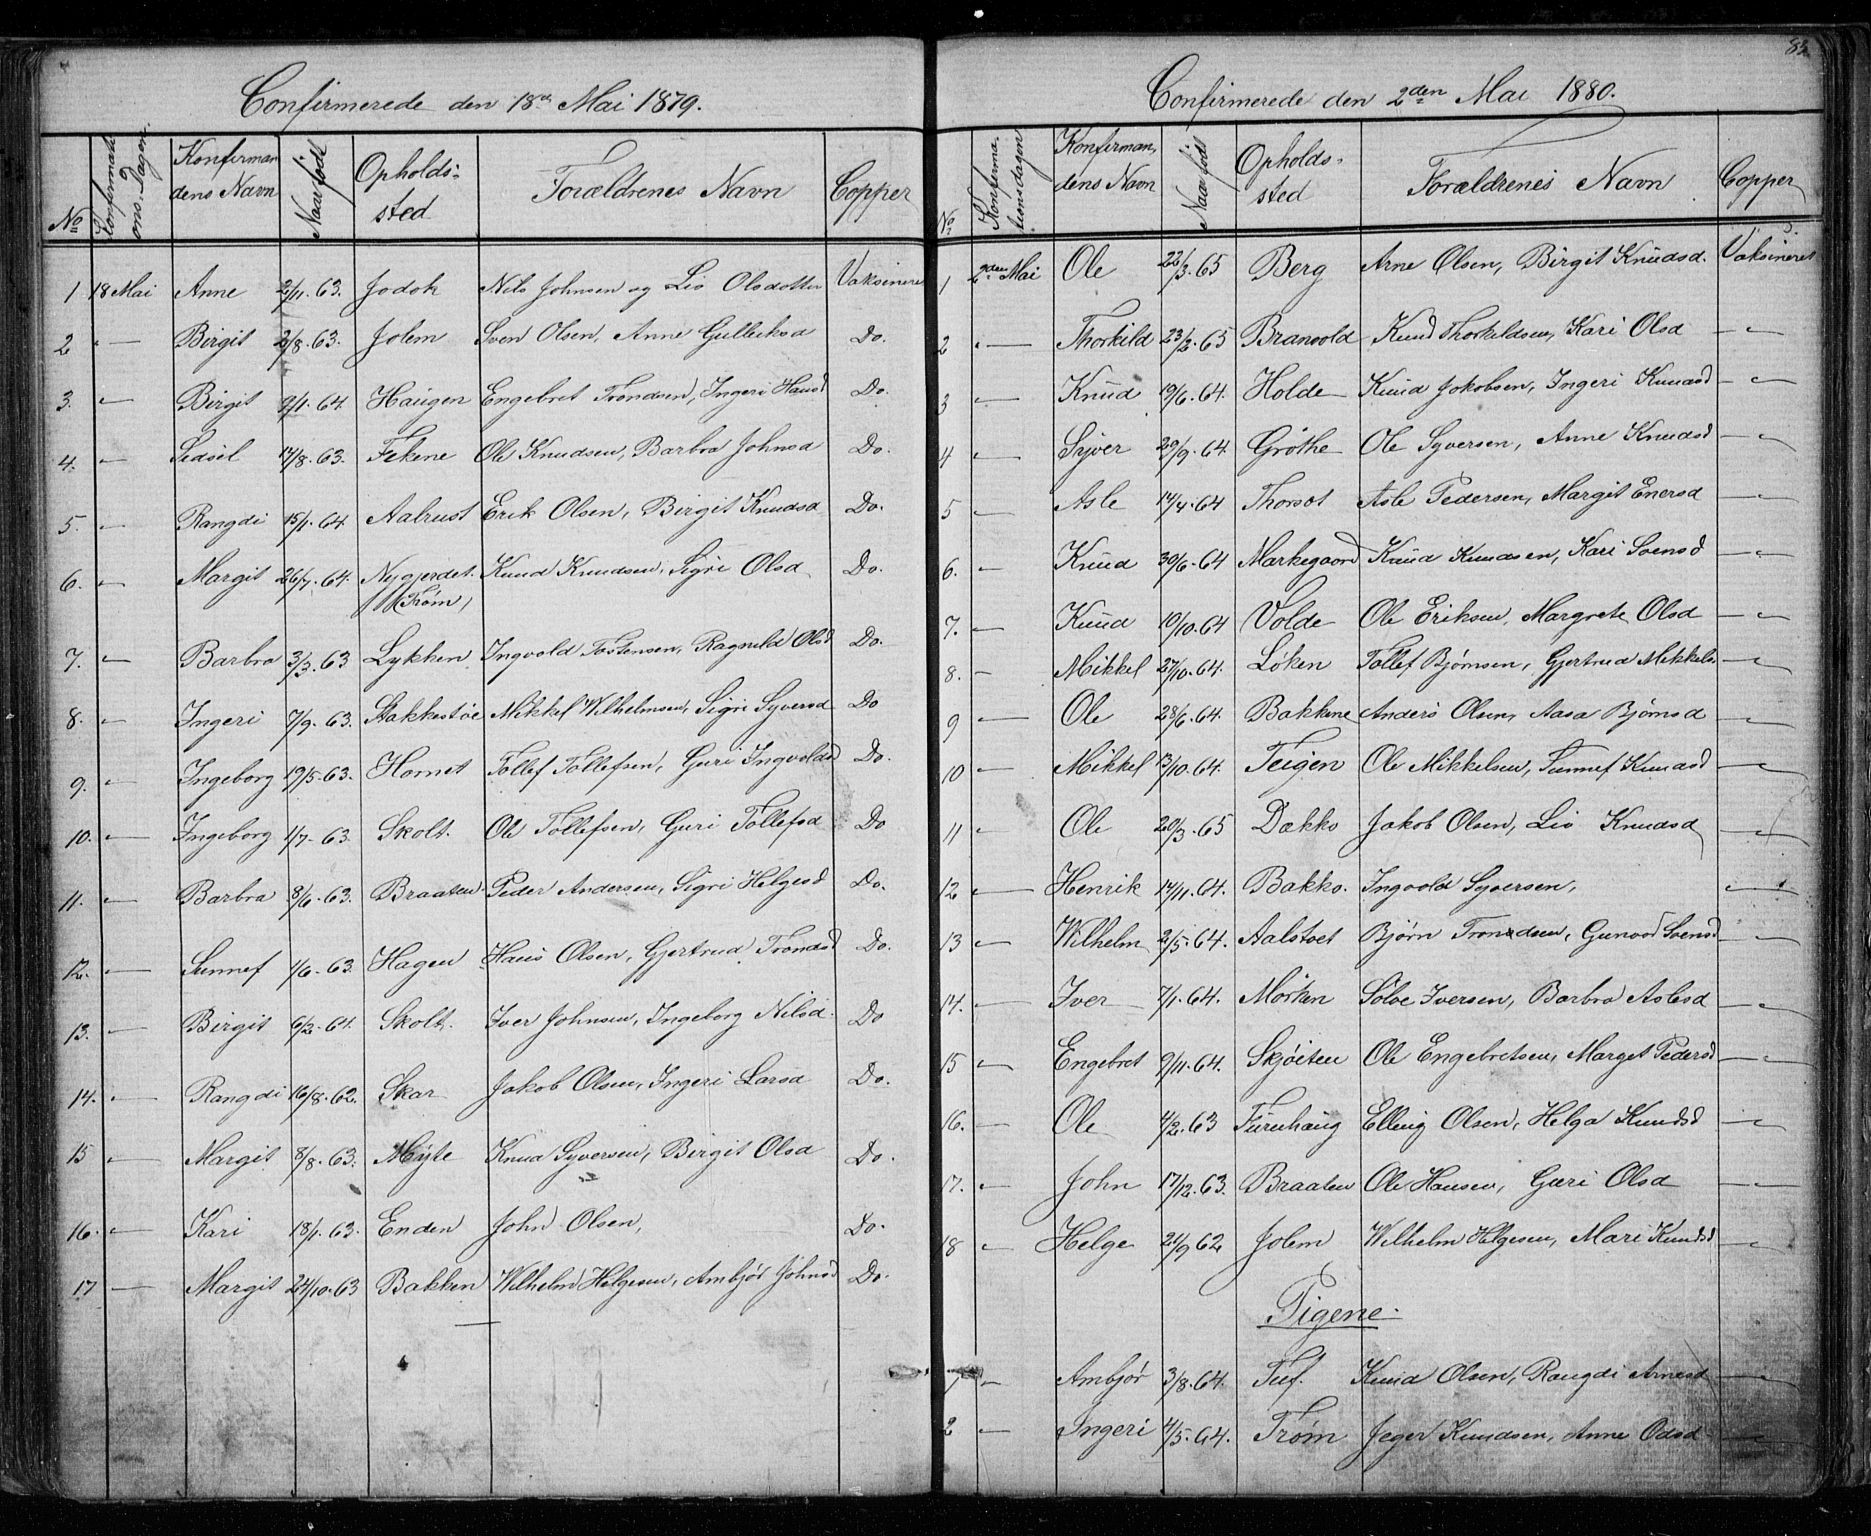 Confirmerede den 18de Mai 1879.
No Konfirmati ons-Dagen. Konfirman dens Navn Naar født Opholds- sted Forældrenes Navn Copper
1 18 Mai Anne 2/11. 63. Jodok Nils Johnsen og Liv Olsdotter Vaksineret
2 -"- Birgit 2/8. 63. Jolem Sven Olsen, Anne Gulleiksd Do.
3. -"- Birgit 9/1. 64. Haugen Engebret Trondsen, Ingeri Hansd Do.
4. -"- Sidsel 14/8. 63. Fekene Ole Knudsen, Barbra Johnsd Do.
5. -"- Rangdi 15/1. 64. Aalrust Erik Olsen, Birgit Knudsd Do.
6. -"- Margit 26/7. 64. Nygjerdet Knud Knudsen, Sigri Olsd Do.
(Trøm)
7. -"- Barbra 3/3. 63 Lykken Ingvold Tostensen, Ragnild Olsd Do.
8. -"- Ingeri 7/9. 63. Stakkestøe Mikkel Wilhelmsen, Sigri Syversd Do
9. -"- Ingeborg 19/5. 63. Hornet Tollef Tollefsen, Guri Ingvoldsd Do.
10. -"- Ingeborg 1/7. 63. Skolt. Ole Tollefsen, Guri Tollefsd Do
11. -"- Barbra 8/6. 63. Braaten Peder Andersen, Sigri Helgesd Do.
12. -"- Sunnef 1/6. 63. Hagen Hans Olsen, Gjertrud Trondsd Do.
13. -"- Birgit 6/2. 64. Skolt. Iver Johnsen, Ingeborg Nilsd. Do
14. -"- Rangdi 16/8. 62. Skar Jakob Olsen, Ingeri Larsd Do.
15 -"- Margit 8/8. 63. Myle Knud Syversen, Birgit Olsd Do.
16. -"- Kari 18/1. 63. Enden John Olsen, Do.
17 -"- Margit 24/10. 63 Bakken Wilhelm Helgesen, Ambjør Johnsd Do.
83
Confirmerede den 2den Mai 1880.
No. Konfirma- tionsdagen Konfirman- dens Navn Naar født Opholds- sted Forældrenes Navn Copper
1 2den Mai Ole 22/3. 65 Berg Arne Olsen, Birgit Knudsd. Vaksineret
2 -"- Thorkild 23/2. 65 Branvold Knud Thorkildsen, Kari Olsd -"-
3 -"- Knud 19/6. 64. Holde Knud Jakobsen, Ingeri Knudsd -"-
4 -"- Syver 29/9. 64. Grøthe Ole Syversen, Anne Knudsd -"-
5 -"- Asle 14/4. 64 Thorsot Asle Pedersen, Margit Enersd -"-
6. -"- Knud 30/6. 64 Markegaard Knud Knudsen, Kari Svensd -"-
7. -"- Knud 10/10. 64 Volde Ole Eriksen, Margrete Olsd -"-
8. -"- Mikkel 27/10. 64. Løken Tollef Bjørnsen, Gjertrud Mikkels -"-
9 -"- Ole 28/6. 64. Bakkene Anders Olsen, Aasa Bjørnsd -"-
10 -"- Mikkel 3/10. 64. Teigen Ole Mikkelsen, Sunnef Knudsd -"-
11 -"- Ole 20/3. 65 Dækko Jakob Olsen, Liv Knudsd -"-
12 -"- Henrik 14/11. 64. Bakko. Ingvold Syversen, -"-
13 -"- Wilhelm 2/5. 64. Aalstvet Bjørn Trondsen, Gunvor Svensd -"-
14. -"- Iver 7/1. 64. Mørken Sølve Iversen, Barbra Aslesd -"-
15 -"- Engebret 9/11. 64. Skjøiten Ole Engebretsen, Marget Pedersd -"-
16. -"- Ole 4/2. 63 Furuhaug Elling Olsen, Helga Knudsd -"-
17. -"- John 17/12. 63. Braaten Ole Hansen, Guri Olsd -"-
18 -"- Helge 24/9 62 Jolem Wilhelm Helgesen, Mari Knudsd -"-
Pigene.
1 -"- Ambjør 3/8. 64. Tuf. Knud Olsen, Rangdi Arnesd -"-
2 -"- Ingeri 4/5. 64. Trøm Jeger Knudsen, Anne Odsd -"-